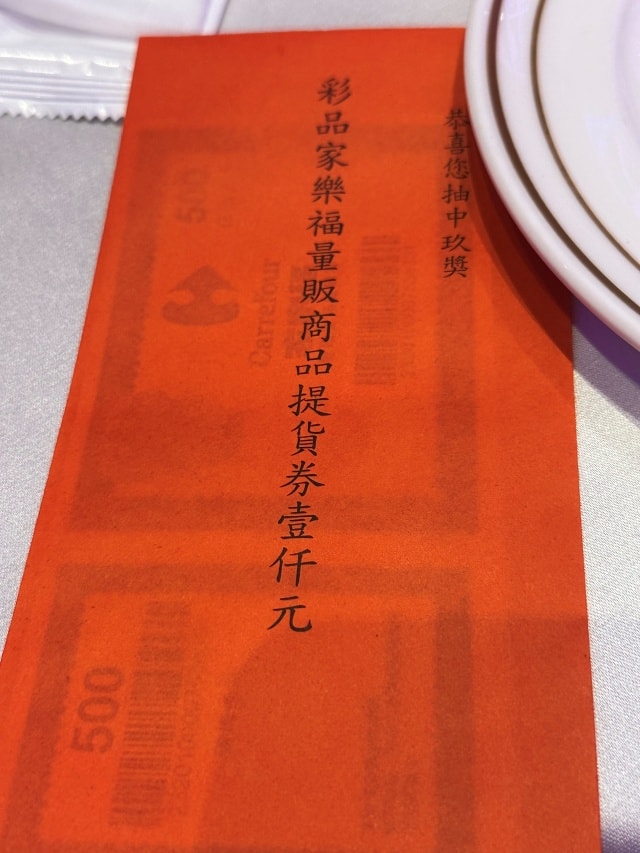 恭喜您抽中玖獎
彩品家樂福量販商品提貨券壹仟元
500
Carrefour
500